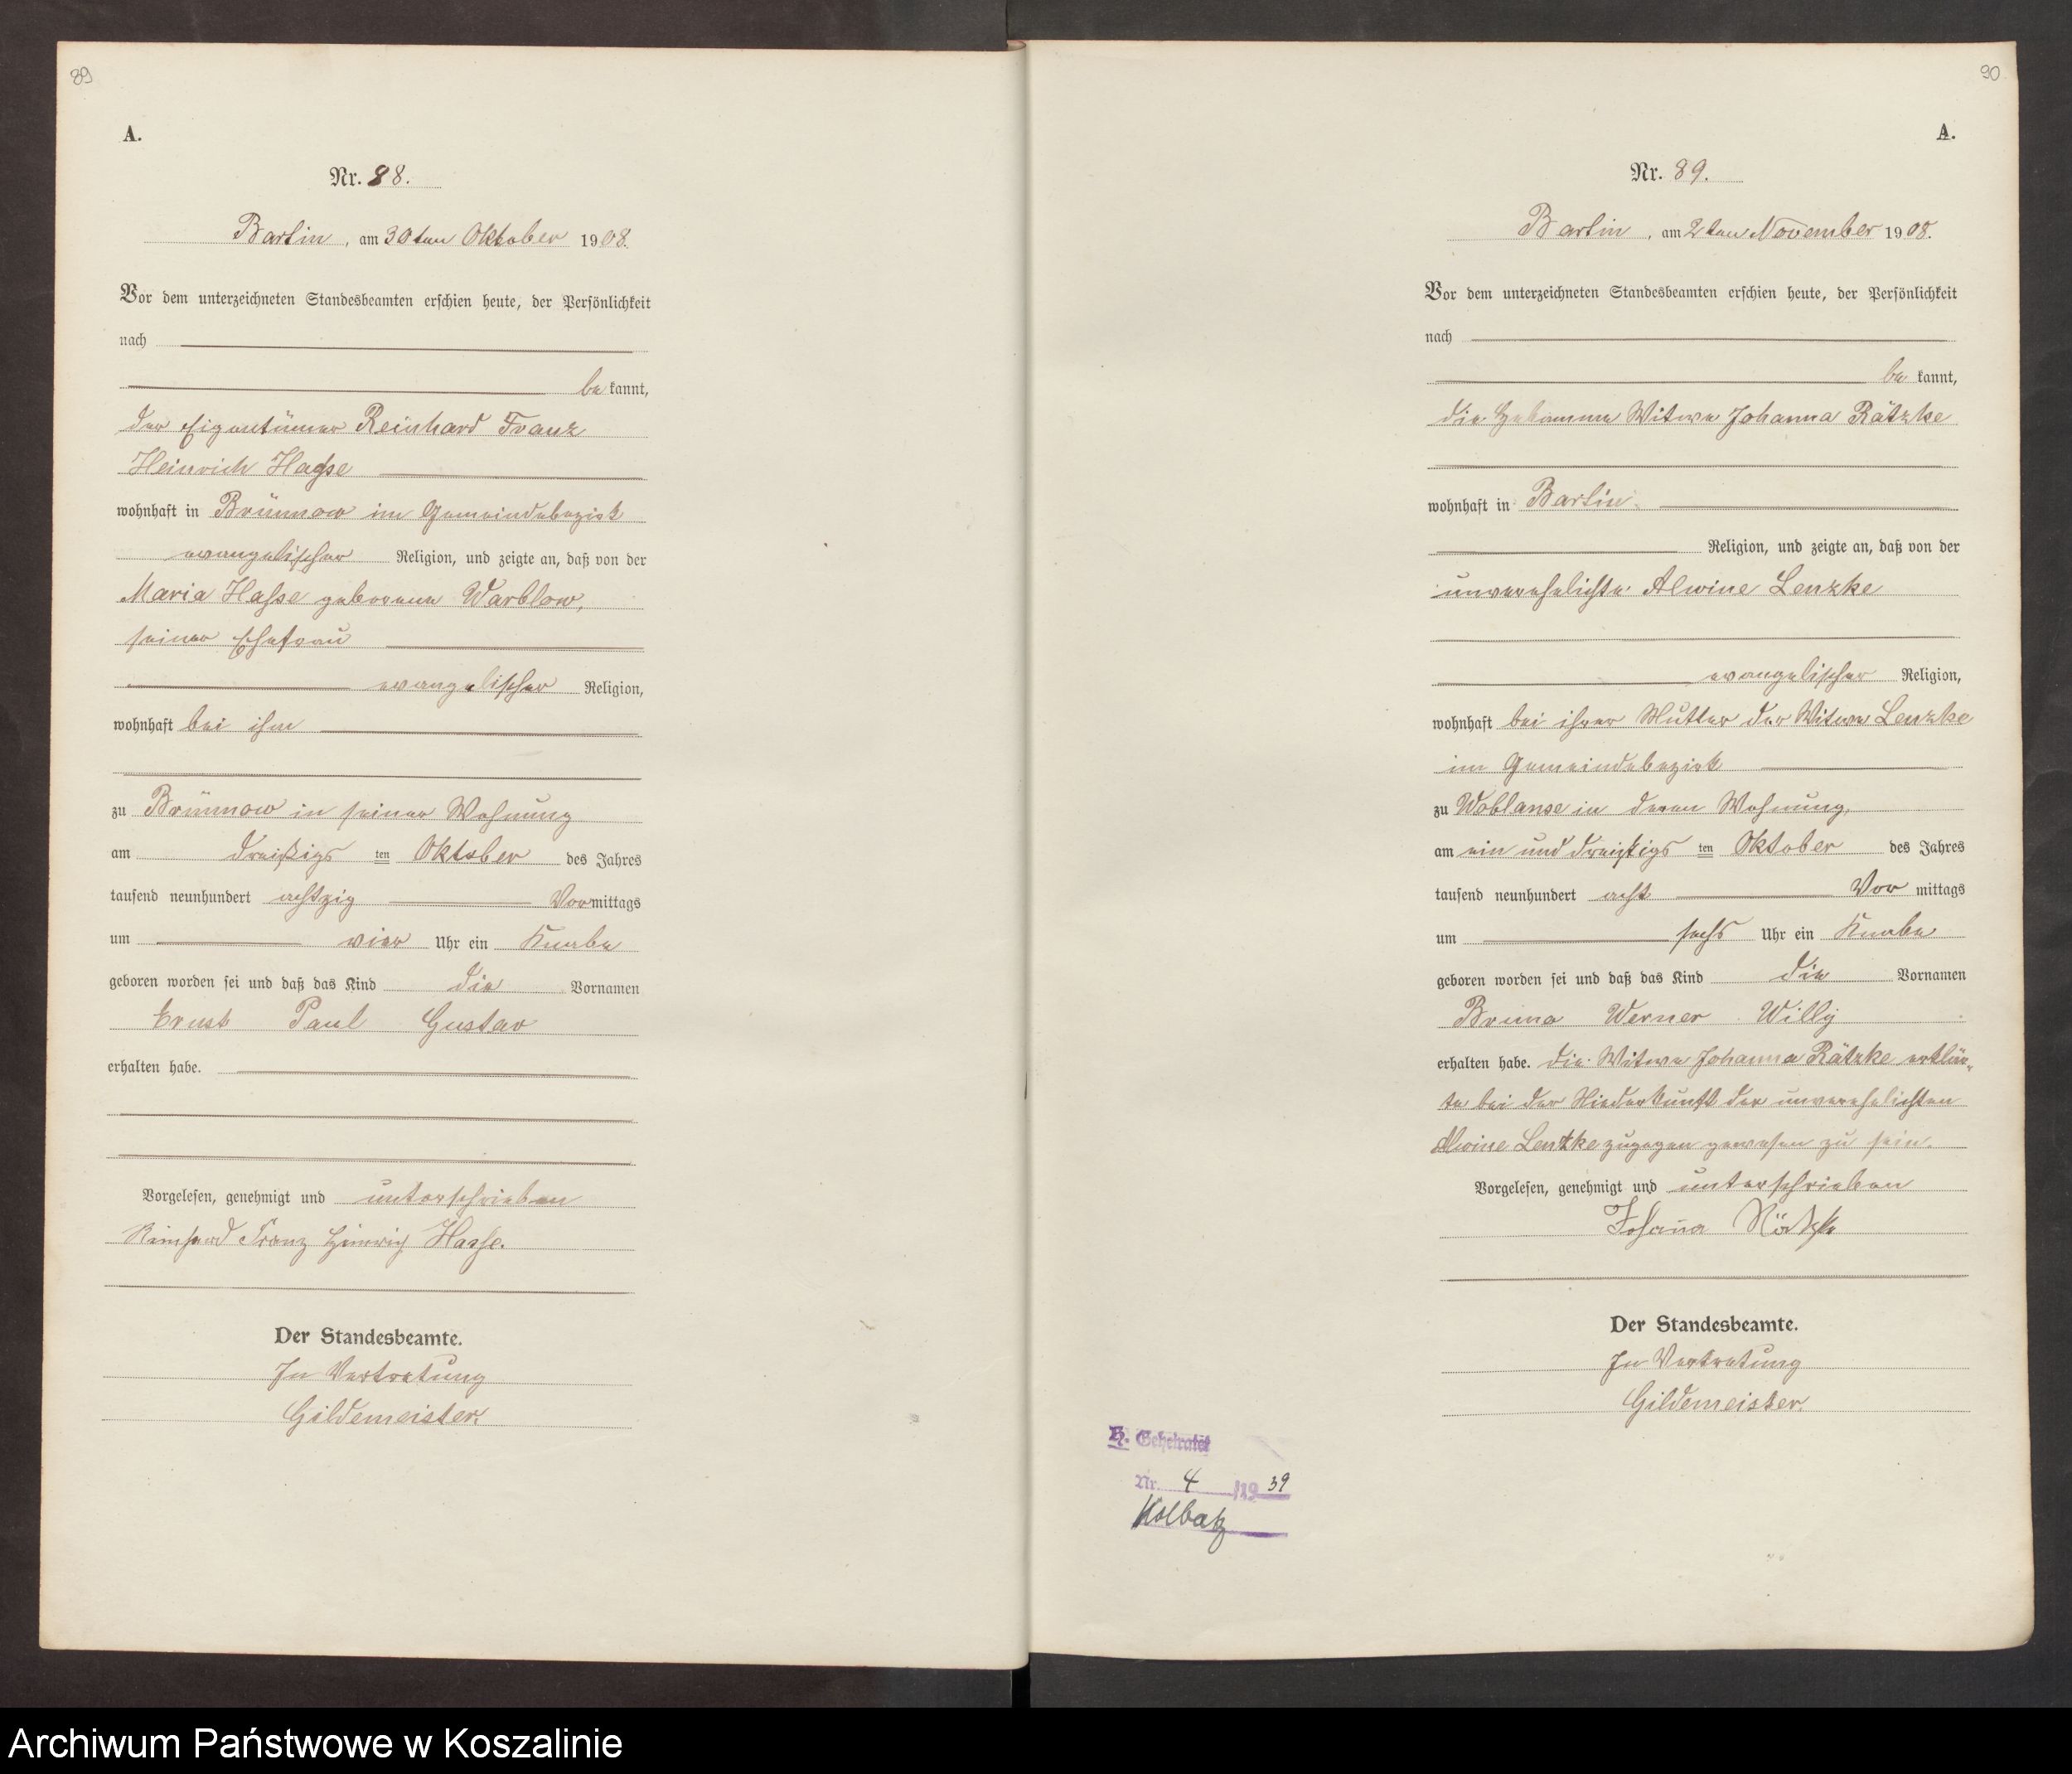 89
A.
Nr. 88.
Bartin, am 30ten Oktober 1908.
Vor dem unterzeichneten Standesbeamten erschien heute, der Persönlichkeit
nach
be kannt,
der Eigentümer Reinhard Franz
Heinrich Hasse
wohnhaft in Brünnow im Gemeindebezirk
evangelischer Religion, und zeigte an, daß von der
Maria Hasse geborene Warblow,
seiner Ehefrau
evangelischer Religion,
wohnhaft bei ihm
zu Brünnow in seiner Wohnung
am dreißigs ten Oktober des Jahres
tausend neunhundert achtzig Vormittags
um vier Uhr ein Knabe
geboren worden sei und daß das Kind die Vornamen
Ernst Paul Gustav
erhalten habe.
Vorgelesen, genehmigt und unterschrieben
Reinhard Franz Heinrich Hasse.
Der Standesbeamte.
In Vertretung
Gildemeister.
90
A.
Nr. 89.
Bartin, am 2ten November 1908.
Vor dem unterzeichneten Standesbeamten erschien heute, der Persönlichkeit
nach
be kannt,
die Hebamme Witwe Johanna Rätzke
wohnhaft in Bartin.
Religion, und zeigte an, daß von der
unverehelichte Alwine Lenzke
evangelischer Religion,
wohnhaft bei ihrer Mutter der Witwe Lenzke
im Gemeindebezirk
zu Woblanse in deren Wohnung,
am ein und dreißigs ten Oktober des Jahres
tausend neunhundert acht Vor mittags
um sechs Uhr ein Knabe
geboren worden sei und daß das Kind die Vornamen
Bruno Werner Willy
erhalten habe. Die Witwe Johanna Rätzke erklär-
te bei der Niederkunft der unverehelichten
Alwine Lentzke zugegen gewesen zu sein.
Vorgelesen, genehmigt und unterschrieben
Johanna Rätzke
Der Standesbeamte.
In Vertretung
Gildemeister.
H. Geheiratet
Nr. 4 /1939
Kolbatz
Archiwum Państwowe w Koszalinie